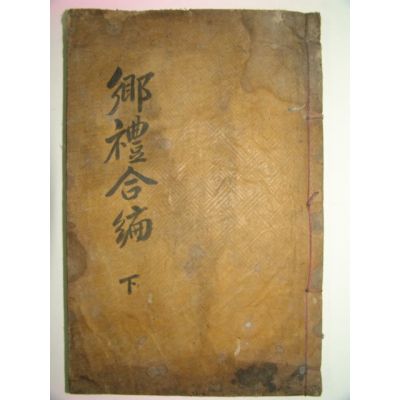 鄕禮合編
下